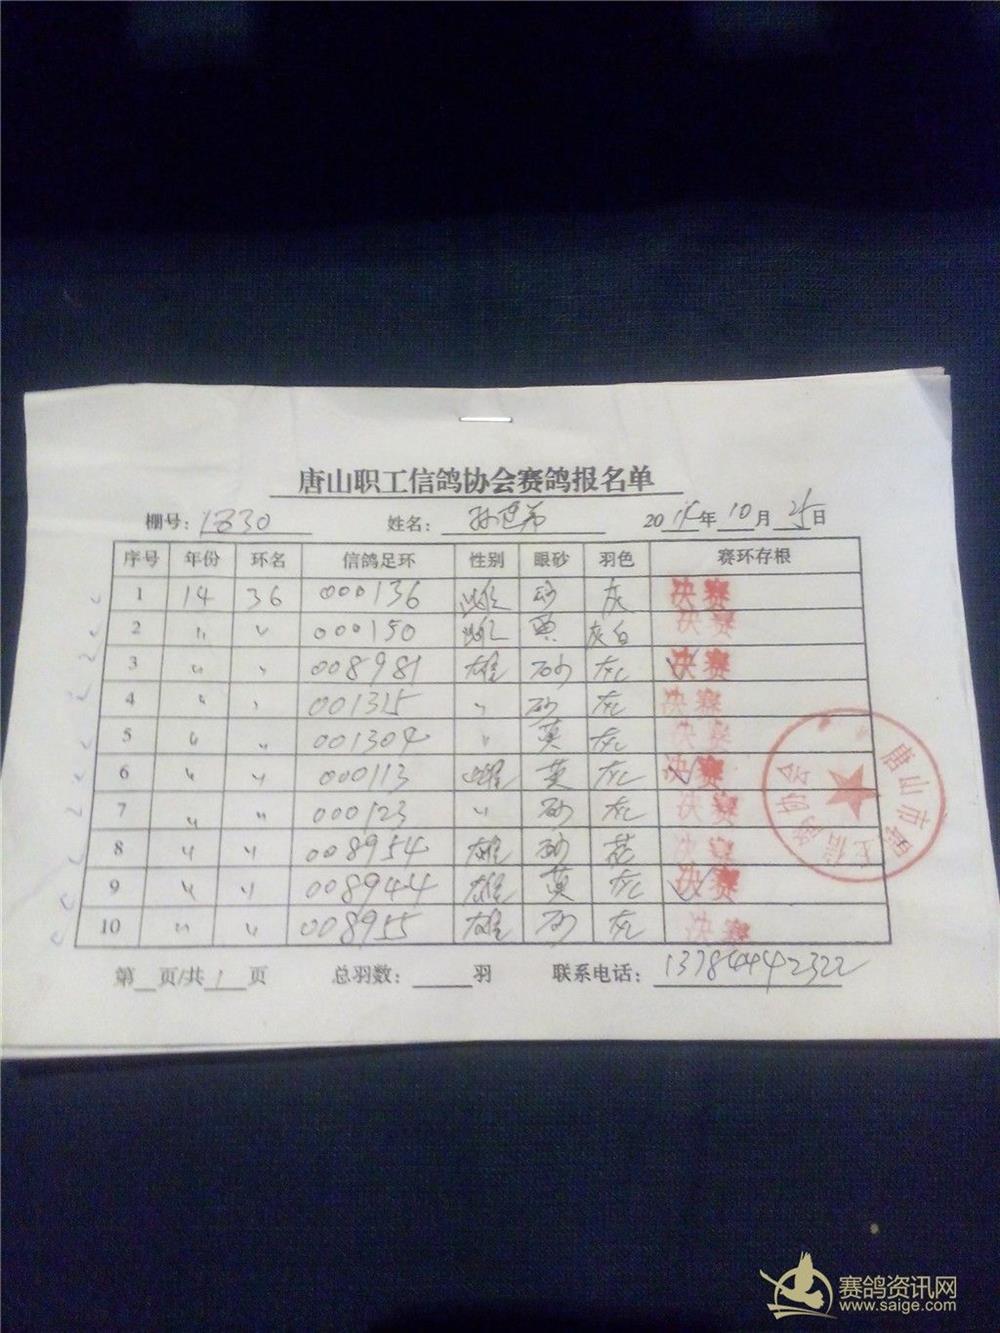 唐山职工信鸽协会赛鸽报名单
棚号： 姓名： 孙 20 年 10 月 日
序号 年份 环名 信鸽足环 性别 眼砂 羽色 赛环存根
1 14 36 000136 雌 砂 灰 决赛
2 〃 〃 000150 雌 黄 灰白 决赛
3 〃 〃 008981 雄 砂 灰 决赛
4 〃 〃 001315 〃 砂 灰 决赛
5 〃 〃 001304 〃 黄 灰 决赛
6 〃 〃 000113 雌 黄 灰 决赛
7 〃 〃 000123 〃 砂 灰 决赛
8 〃 〃 008954 雄 砂 花 决赛
9 〃 〃 008944 雄 黄 灰 决赛
10 〃 〃 008955 雄 砂 灰 决赛
唐山市职工信鸽协会
第 页/共 1 页 总羽数： 羽 联系电话： 13784442322
赛鸽资讯网
www.saige.com